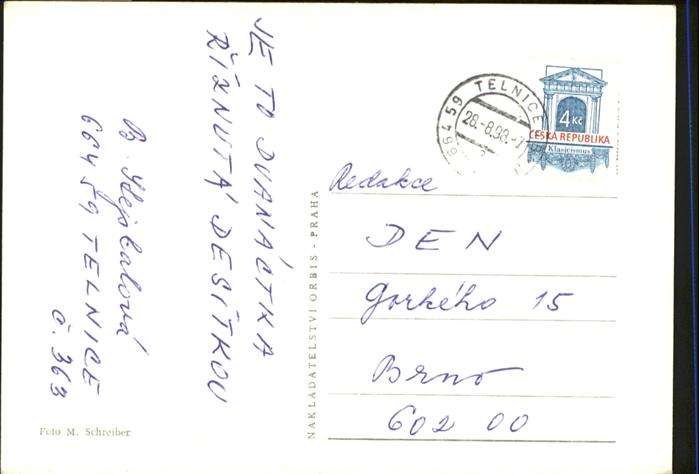 JE TO DVANÁCTKA
ŘÍZNUTÁ DESÍTKOU
664 59 TELNICE
č. 363
Foto M. Schreiber
NAKLADATELSTVÍ ORBIS - PRAHA
664 59 TELNICE
28.-8.98.-
4 Kč
ČESKÁ REPUBLIKA
Klasicismus
Redakce
DEN
Gorkého 15
Brno
602 00